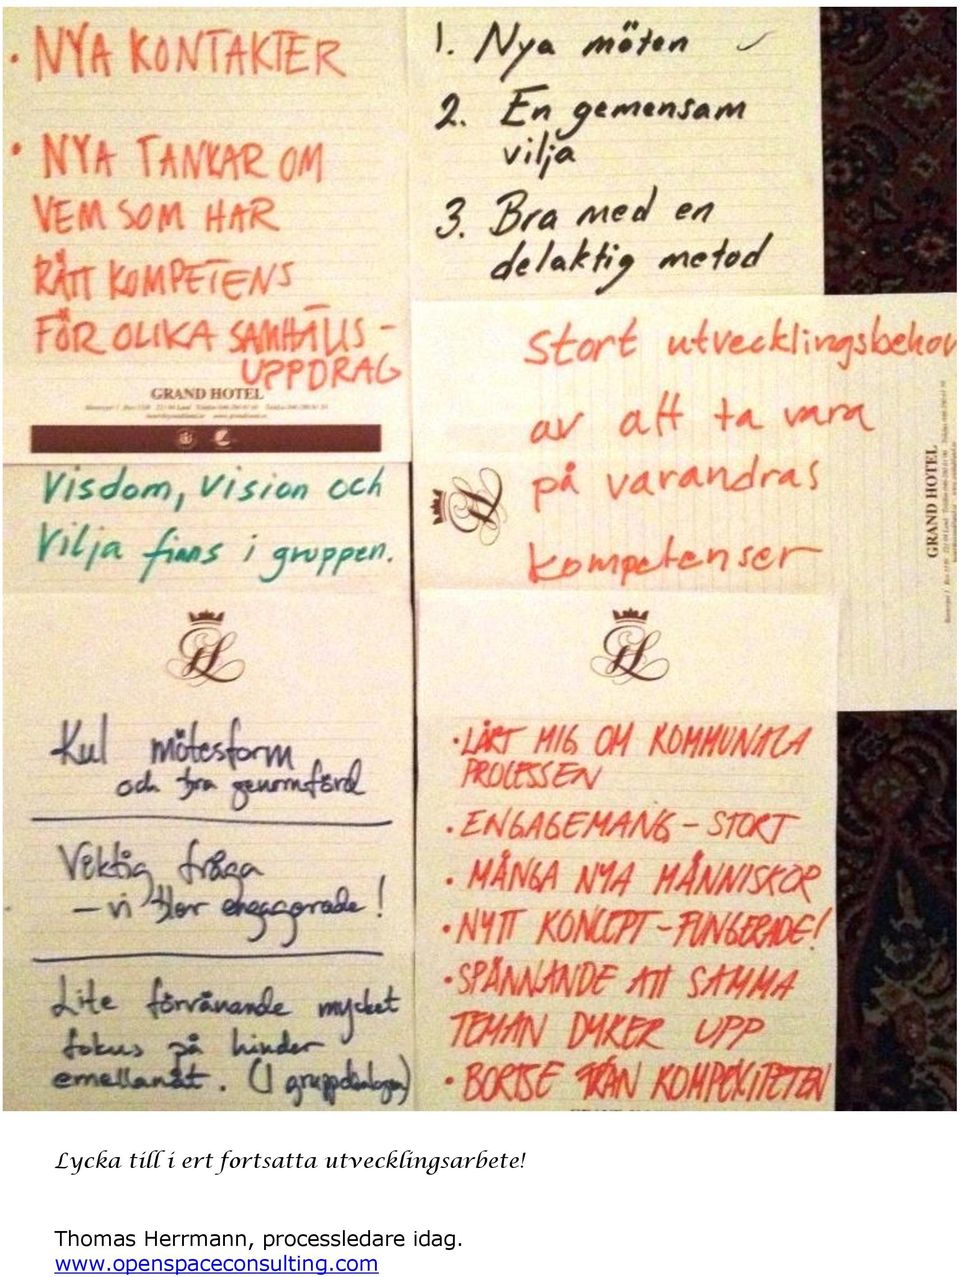 • NYA KONTAKTER
• NYA TANKAR OM
VEM SOM HAR
RÄTT KOMPETENS
FÖR OLIKA SAMHÄLLS-
UPPDRAG
GRAND HOTEL
1. Nya möten ✓
2. En gemensam
vilja
3. Bra med en
delaktig metod
Stort utvecklingsbehov
av att ta vara
på varandras
kompetenser
GRAND HOTEL
Visdom, vision och
Vilja finns i gruppen.
Kul mötesform
och bra genomförd
Viktig fråga
– vi blev engagerade!
Lite förvånande mycket
fokus på hinder
emellanåt. (I gruppdialogen)
• LÄRT MIG OM KOMMUNALA
PROCESSEN
• ENGAGEMANG – STORT
• MÅNGA NYA MÄNNISKOR
• NYTT KONCEPT – FUNGERADE!
• SPÄNNANDE ATT SAMMA
TEMAN DYKER UPP
• BORTSE FRÅN KOMPEXITETEN
Lycka till i ert fortsatta utvecklingsarbete!
Thomas Herrmann, processledare idag.
www.openspaceconsulting.com